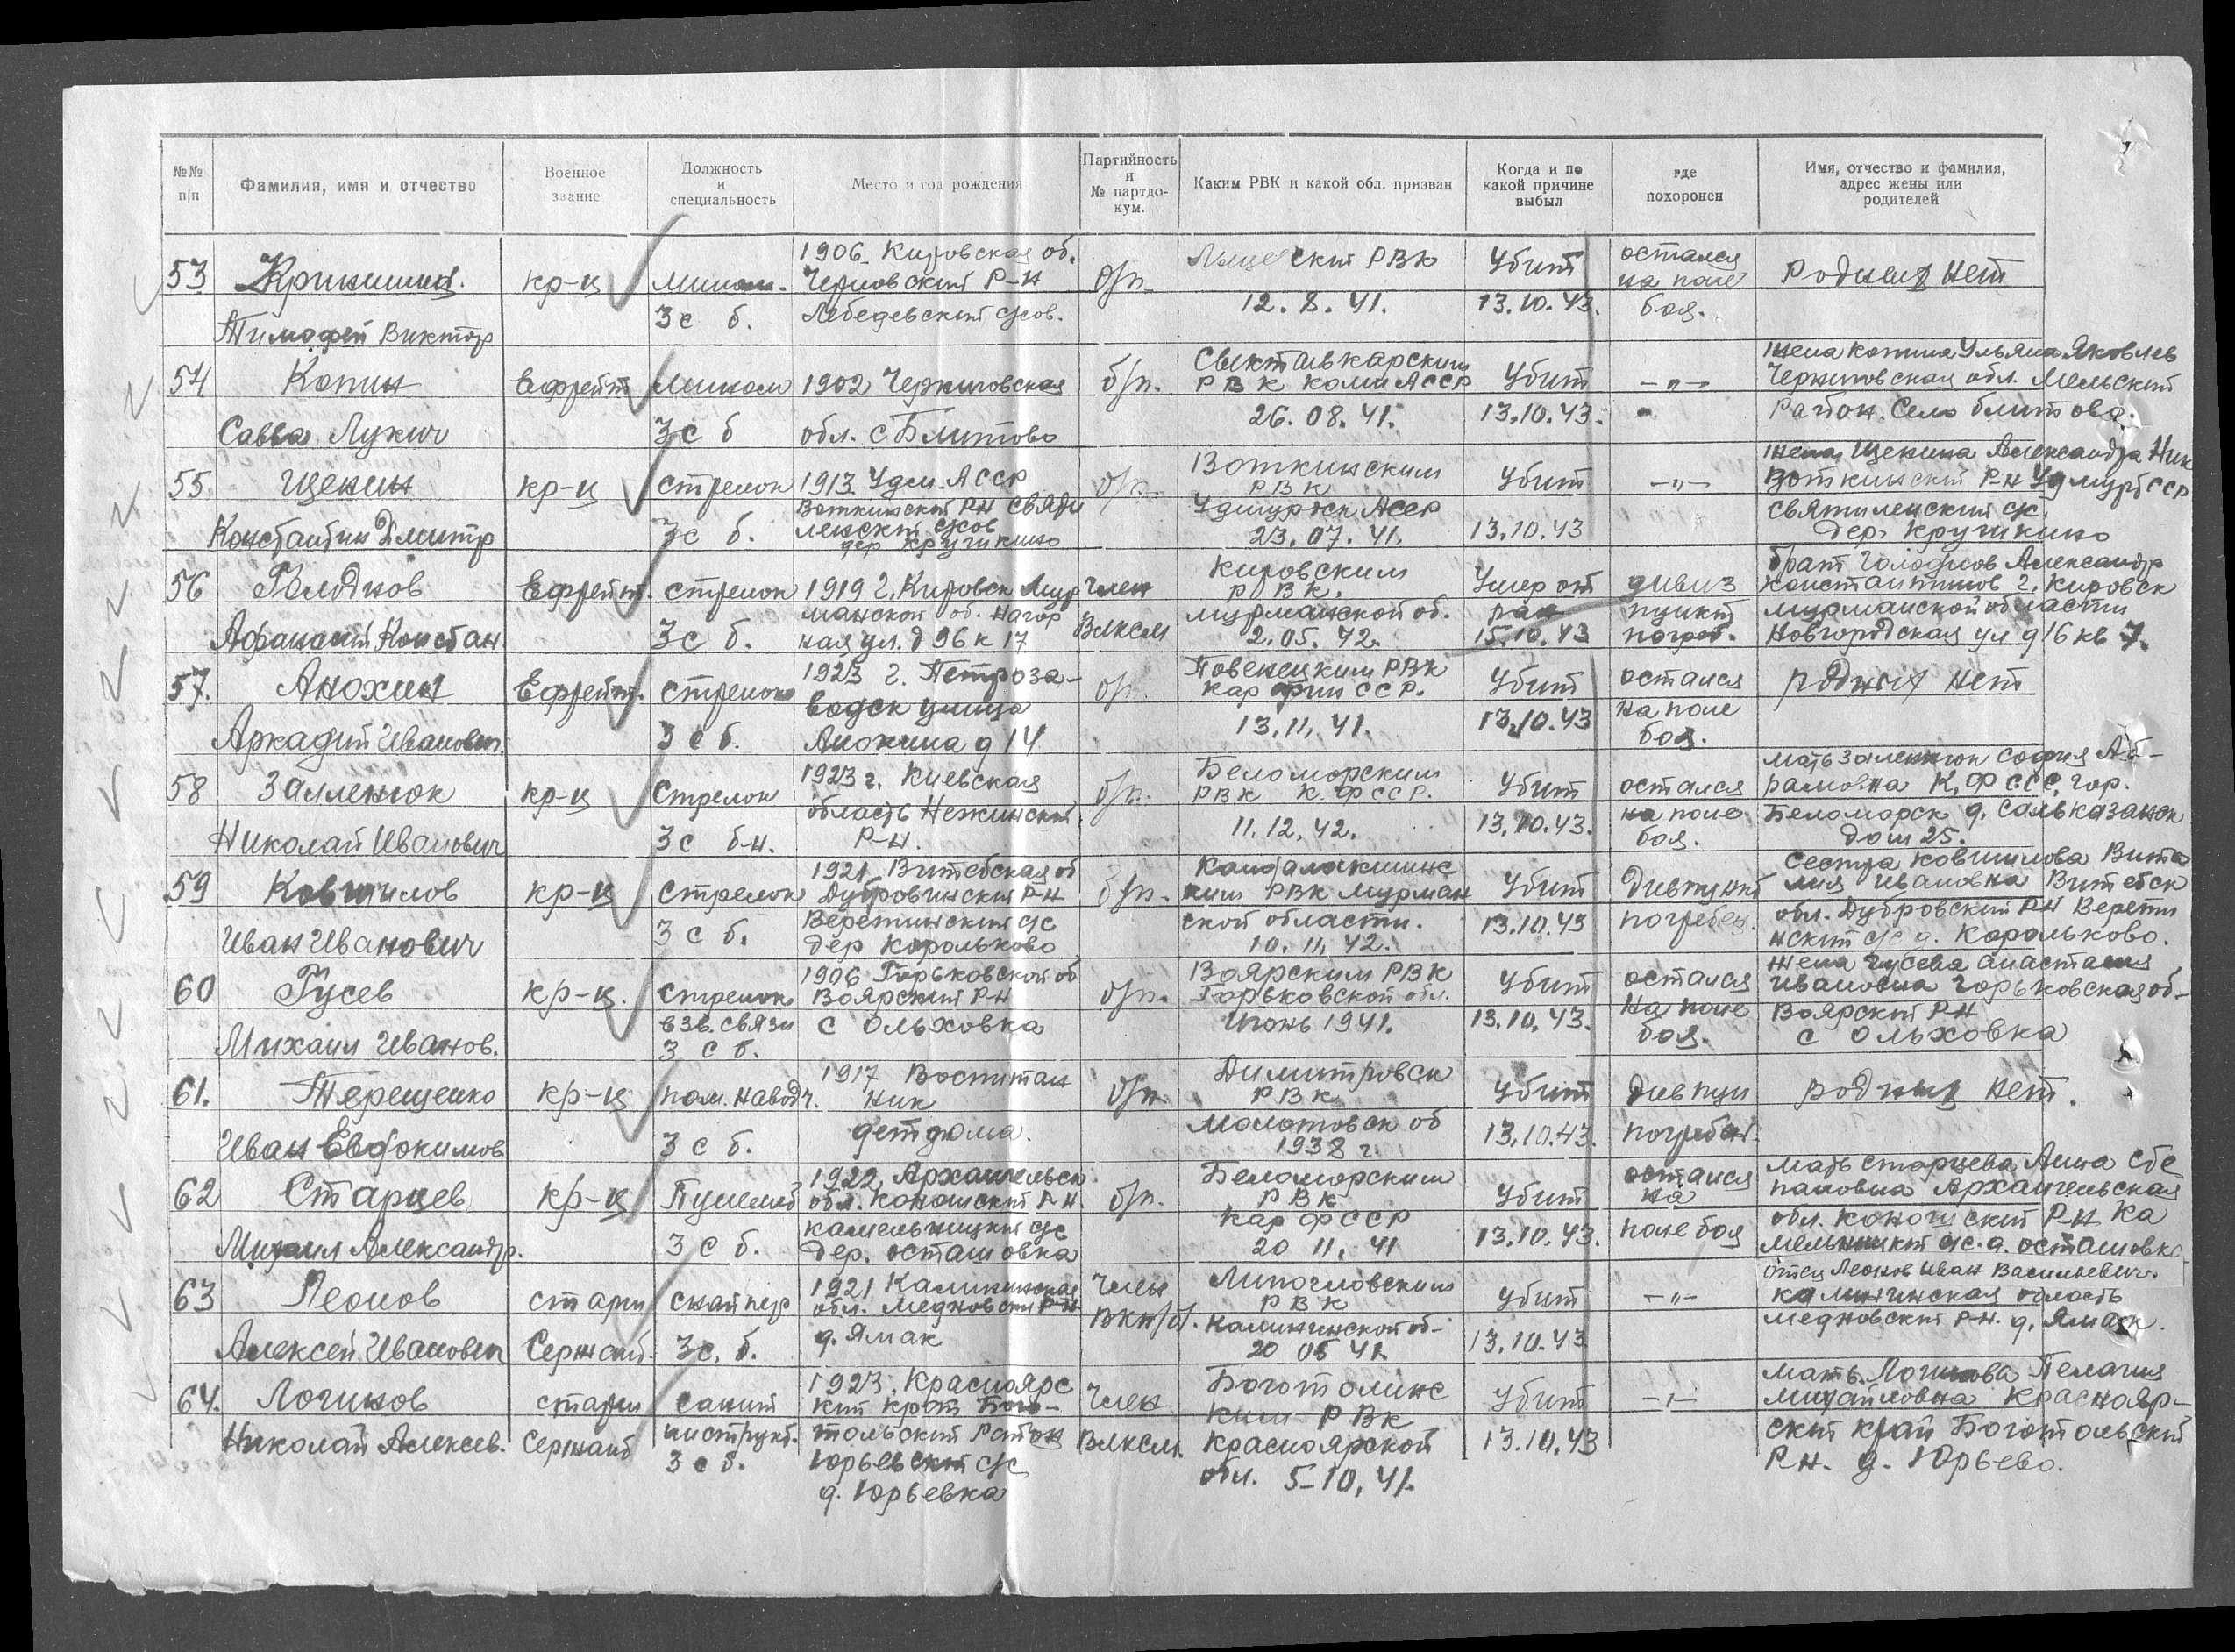 №№ п/п
Фамилия, имя и отчество
Военное звание
Должность и специальность
Место и год рождения
Партийность и № партдокум.
Каким РВК и какой обл. призван
Когда и по какой причине выбыл
где похоронен
Имя, отчество и фамилия, адрес жены или родителей
53 кр-ц 1906 Кировская об. б/п РВК Убит остался Родных нет
Тимофей Виктор 3 с б. Лебедевский с/сов. 12.8.41. 13.10.43. на поле боя.
54 Копин Ефрейт 1902 Черниговская б/п. Сыктывкарским РВК Коми АССР Убит —"— жена Копина Ульяна Яковлев
Савва Лукич 3 с б обл. с Блитово 26.08.41. 13.10.43. Черниговская обл. Район. Село Блитова.
55 Щекин кр-ц стрелок 1913 Удм. АССР б/п. Воткинским РВК Убит —"— жена Щекина Александра Ник
Константин Дмитр 3 с б. Воткинский РН с/сов дер Кручикино Удмуртск АССР 23.07.41. 13.10.43 Воткинский РН с/с. дер. Кручикино
56 Ефрейт. стрелок 1919 г. Кировск Мур Член Кировским РВК. Умер от ран дивиз пункт брат Александр
Афанасий Констан. 3 с б. манской об. Нагор ная ул. д 96 к 17 ВЛКСМ мурманской об. 2.05.42. 15.10.43 погреб. Константинов г. Кировск мурманской области Новгородская ул д 16 кв 7.
57. Анохин Ефрейт. стрелок 1923 г. Петроза- б/п. Повенецким РВК Кар фин ССР. Убит остался родных нет
Аркадий Иванович. 3 с б. водск улица Анохина д 14 13.11.41. 13.10.43 на поле боя.
58 Заленюк кр-ц Стрелок 1923 г. Киевская б/п. Беломорским РВК К.ФССР. Убит остался мать Заленюк София Аб-
Николай Иванович 3 с б-н. область Нежинский Р-Н. 11.12.42. 13.10.43. на поле боя. рамовна К.ФССС, гор. Беломорск дом 25.
59 Ковшилов кр-ц стрелок 1921 Витебская об б/п. Кандалакшинс ким РВК Мурман Убит Дивпункт Сестра Ковшилова
Иван Иванович 3 с б. Дубровинский РН Веретинский с/с дер Корольково ской области. 10.11.42. 13.10.43 погребен. Ивановна Витебск обл. Дубровский РН Верети нский с/с д. Корольково.
60 Гусев кр-ц. стрелок 1906 Горьковской об б/п. Воярским РВК Убит остался жена Гусева Анастасия
Михаил Иванов. взв. связи 3 с б. Воярский Р-Н с Ольховка Горьковской обл. Июнь 1941. 13.10.43. на поле боя. Ивановна Горьковская об- Воярский РН с Ольховка
61. Терещенко кр-ц пом. наводч. 1917 Воспитан ник б/п Димитровск РВК Убит Див пун Родных нет.
Иван Евдокимов 3 с б. детдома. Молотовск об 1938 г. 13.10.43. погребен.
62 Старцев кр-ц 1922 Архангельск б/п. Беломорским РВК Убит остался на мать Старцева Анна Сте
Михаил Александр. 3 с б. обл. Коношский РН. с/с дер. Осташовка Кар ФССР 20 11. 41 13.10.43. поле боя пановна Архангельская обл. Коношский РН с/с. д. Осташовка
63 Леонов старш снайпер 1921 Калининская Член РВК Убит —"— отец Леонов Иван Васильевич.
Алексей Иванович Сержант. 3 с. б. обл. Медновский Р-Н д. Ямак ВКП/б/. Калининской об- 20 05 41. 13.10.43 Калининская область Медновский РН. д. Ямак.
64. Логинов старш санит 1923. Красноярс Член Боготолинс ким РВК Убит —"— мать Логинова Пелагия
Николай Алексеев. Сержант инструкт. 3 с б. кий край Бого- тольский Район Юрьевский с/с д. Юрьевка ВЛКСМ. Красноярской обл. 5-10.41. 13.10.43 Михайловна Краснояр- ский край Боготольский РН. д. Юрьево.